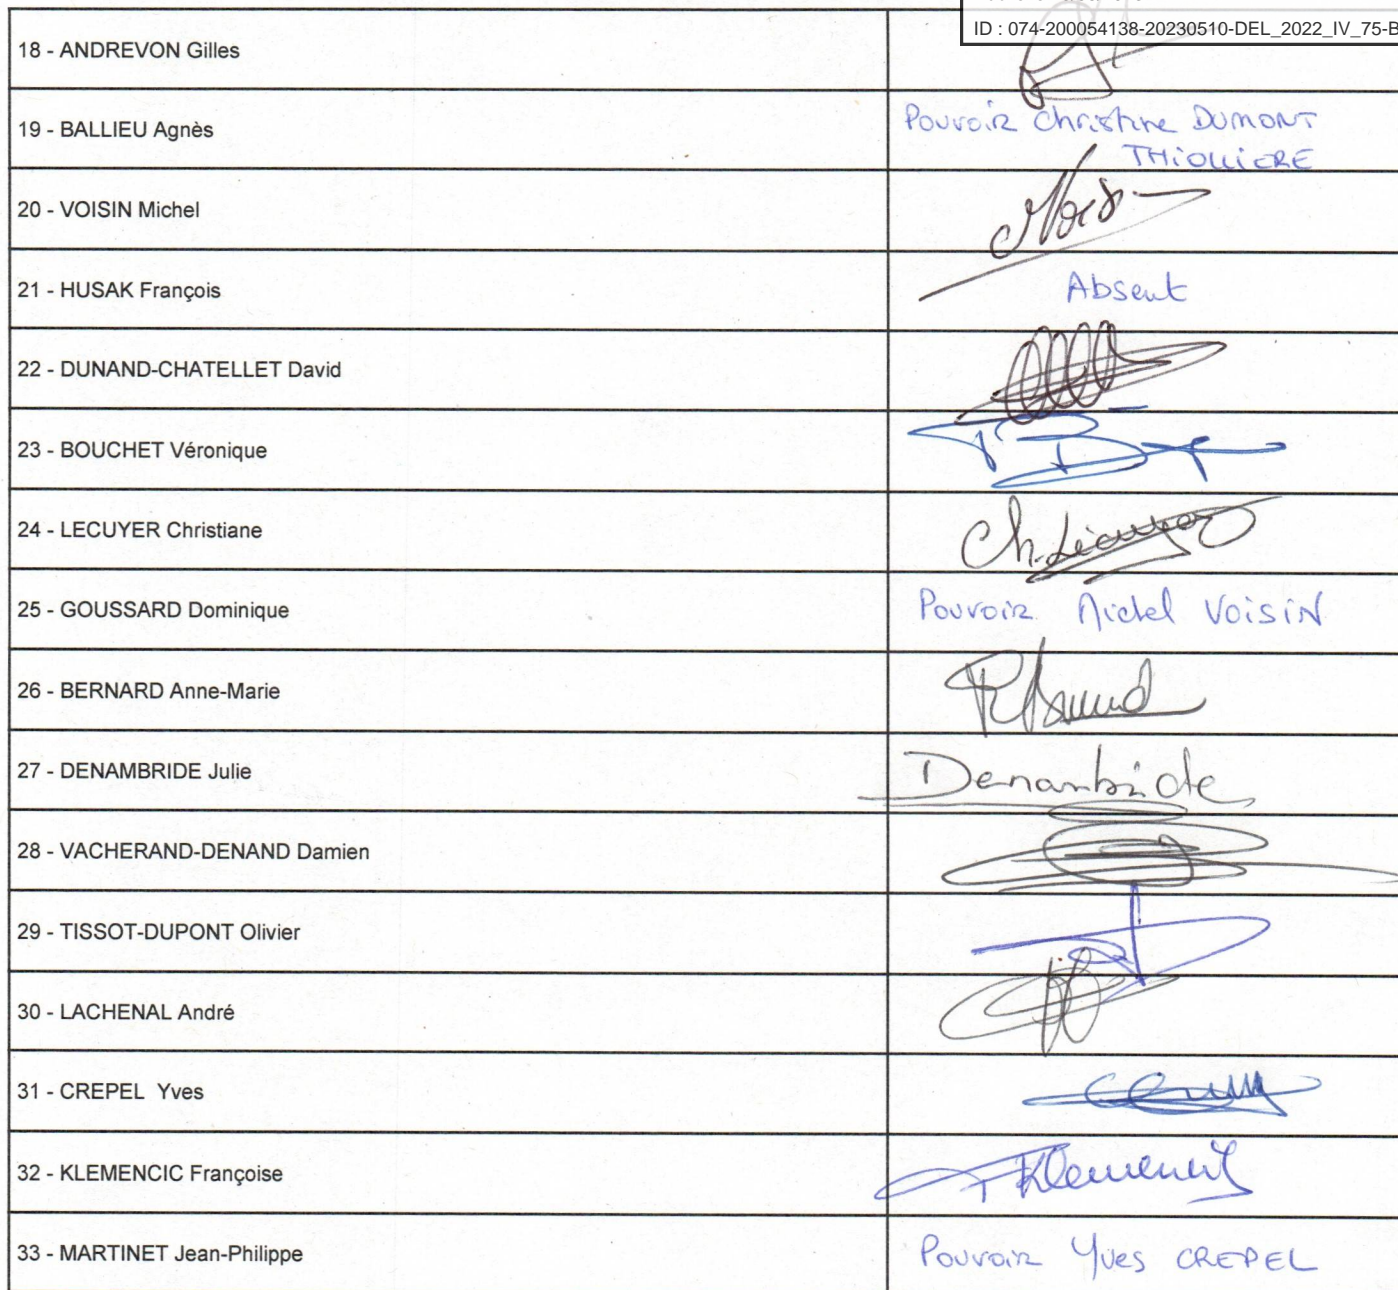 ID : 074-200054138-20230510-DEL_2022_IV_75-B
18 - ANDREVON Gilles
19 - BALLIEU Agnès
Pouvoir Christine DUMONT
THIOLLIERE
20 - VOISIN Michel
21 - HUSAK François
Absent
22 - DUNAND-CHATELLET David
23 - BOUCHET Véronique
24 - LECUYER Christiane
Ch. Lécuyer
25 - GOUSSARD Dominique
Pouvoir Michel VOISIN
26 - BERNARD Anne-Marie
27 - DENAMBRIDE Julie
Denambride
28 - VACHERAND-DENAND Damien
29 - TISSOT-DUPONT Olivier
30 - LACHENAL André
31 - CREPEL Yves
32 - KLEMENCIC Françoise
F Klemencic
33 - MARTINET Jean-Philippe
Pouvoir Yves CREPEL